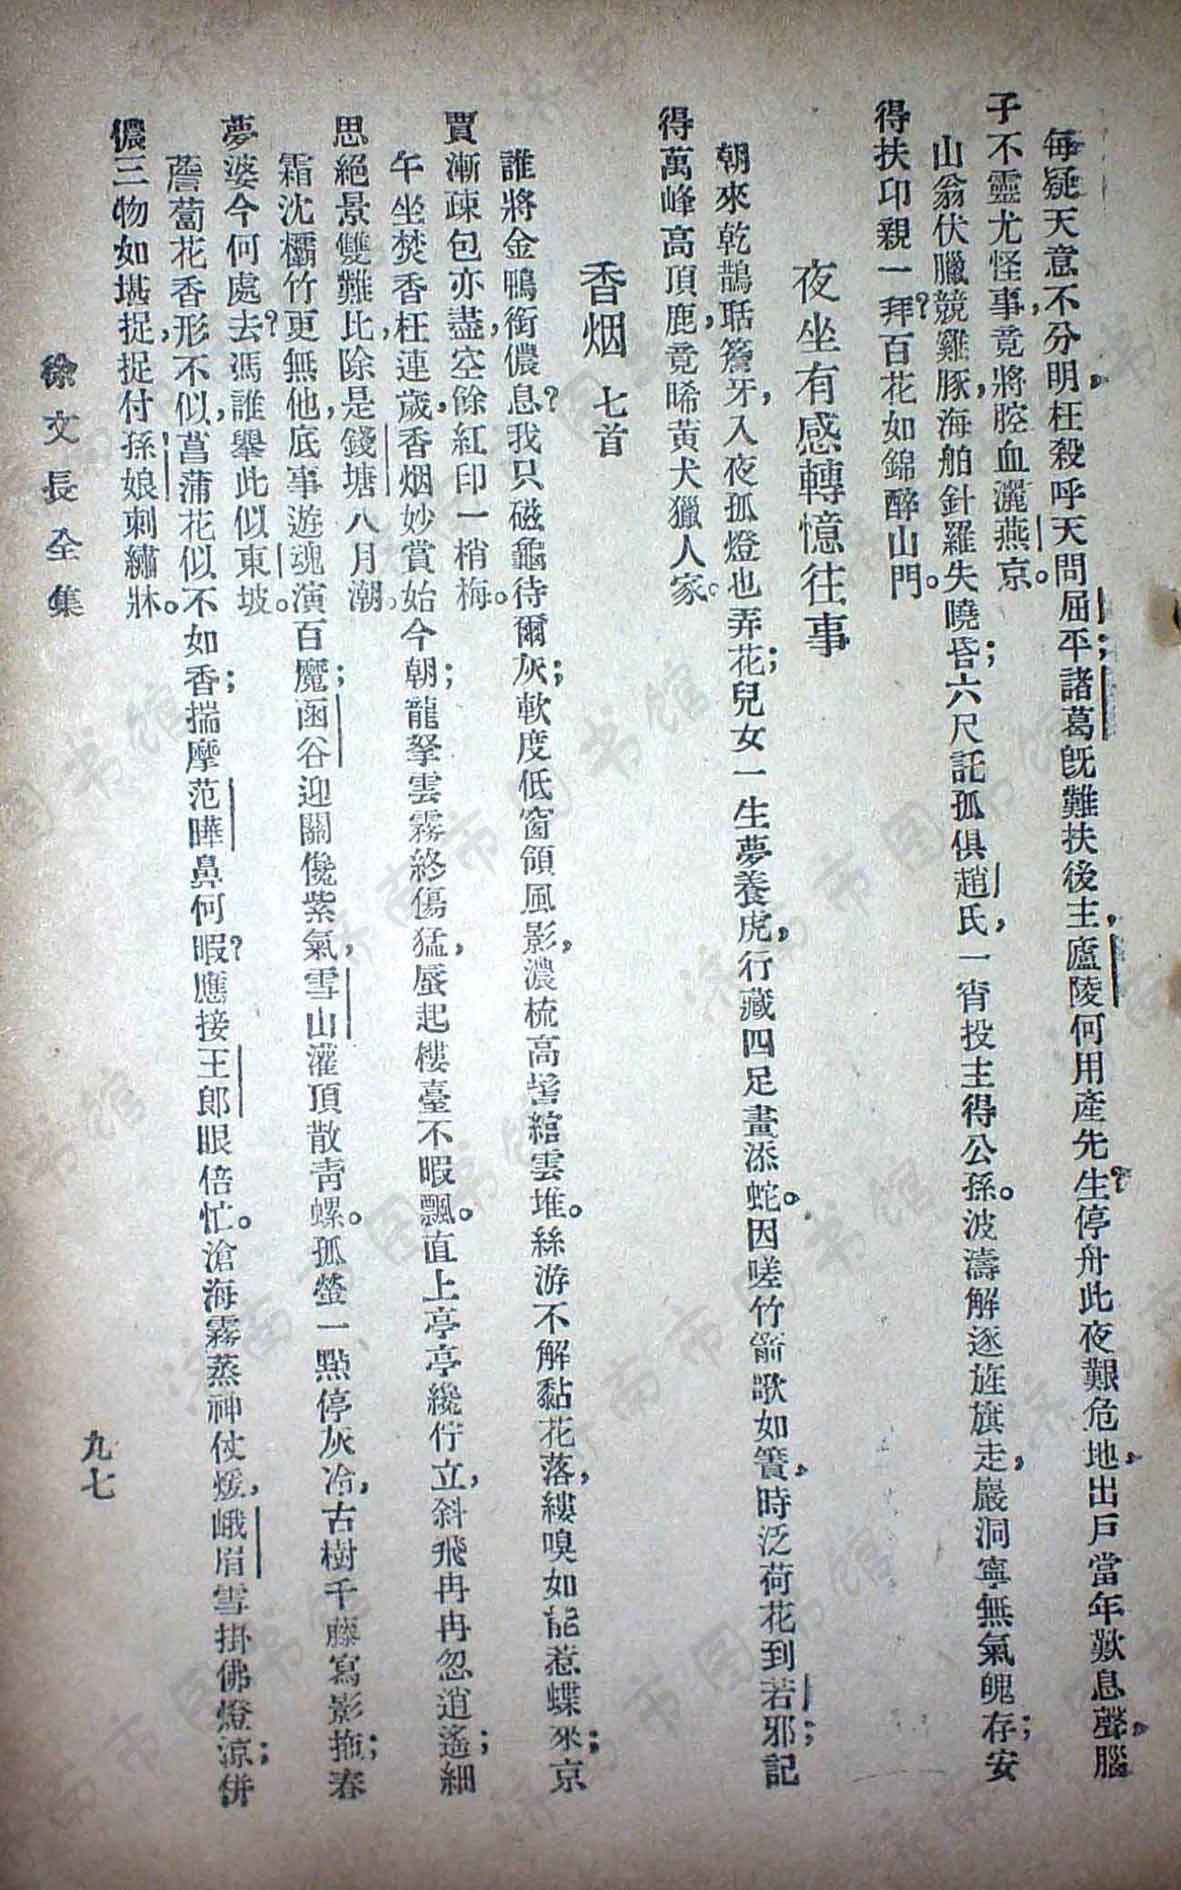 每疑天意不分明，枉殺呼天問屈平；諸葛旣難扶後主，廬陵何用產先生？停舟此夜艱危地，出戶當年歎息聲，腦
子不靈尤怪事，竟將腔血灑燕京。
山翁伏臘競雞豚，海舶針羅失曉昏；六尺託孤俱趙氏，一宵投主得公孫。波濤解逐旌旗走，巖洞寧無氣魄存；安
得扶印親一拜？百花如錦醉山門。
夜坐有感轉憶往事
朝來乾鵲聒簷牙，入夜孤燈也弄花；兒女一生夢養虎，行藏四足畫添蛇。因嗟竹箭歌如簧，時泛荷花到若邪；記
得萬峰高頂鹿，竟晞黃犬獵人家。
香烟 七首
誰將金鴨銜儂息？我只磁龜待爾灰；軟度低窗領風影，濃梳高髻綰雲堆。絲游不解黏花落，縷嗅如能惹蝶來；京
賈漸疎包亦盡，空餘紅印一梢梅。
午坐焚香枉連歲，香烟妙賞始今朝；龍拏雲霧終傷猛，蜃起樓臺不暇飄。直上亭亭纔佇立，斜飛冉冉忽逍遙；細
思絕景雙難比，除是錢塘八月潮。
霜沈欘竹更無他，底事遊魂演百魔；函谷迎關儳紫氣，雪山灌頂散靑螺。孤螢一點停灰冷，古樹千藤寫影拖；春
夢婆今何處去？馮誰舉此似東坡。
薝蔔花香形不似，菖蒲花似不如香；揣摩范曄鼻何暇？應接王郎眼倍忙。滄海霧蒸神仗煖，峨眉雪掛佛燈涼；併
儂三物如堪捉，捉付孫娘刺繡牀。
徐文長全集
九七